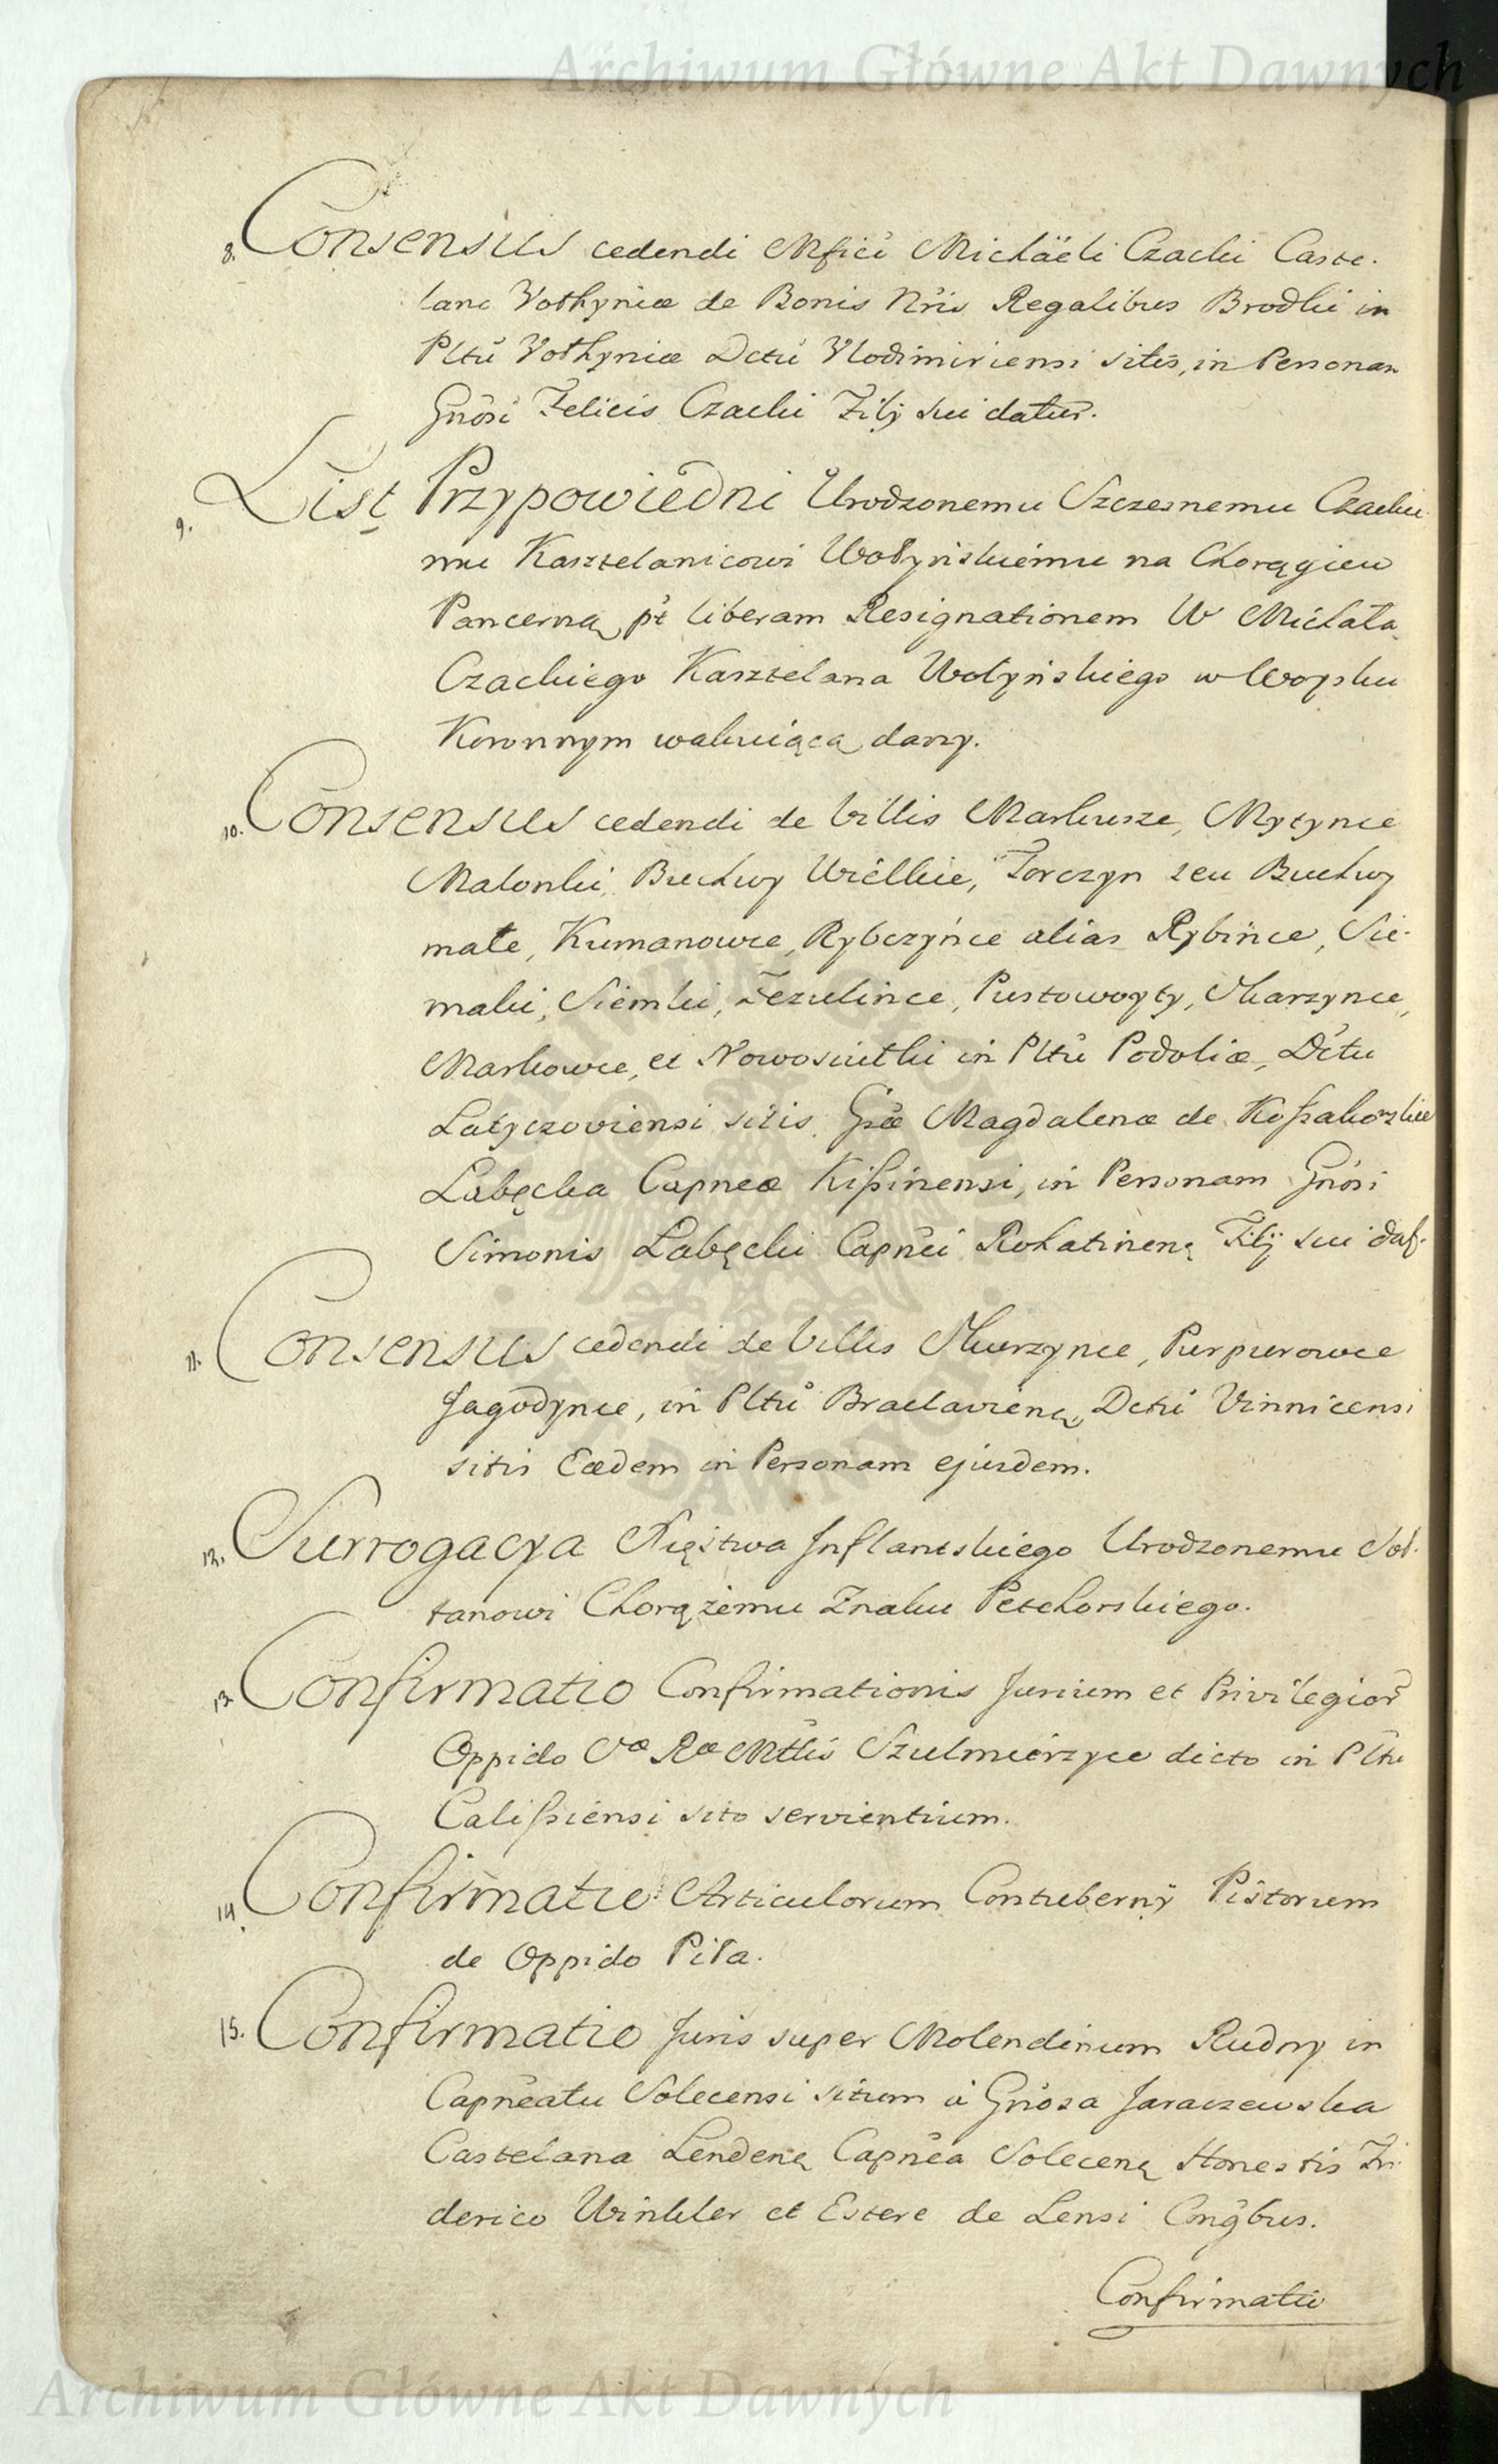 Archiwum Główne Akt Dawnych
8. Consensus cedendi Mfico Michaëli Czacki Caste-
lano Volhyniæ de Bonis Nris Regalibus Brodki in
Pltu Volhyniæ Dctu Vlodimiriensi sitis, in Personam
Gnosi Felicis Czacki Filij sui datus.
9. List Przypowiedni Urodzonemu Szczesnemu Czackie-
mu Kasztelanicowi Wołyńskiemu na Chorągiew
Pancerną pt liberam Resignationem W Michała
Czackiego Kasztelana Wołyńskiego w Woysku
Koronnym wakuiącą dany.
10. Consensus cedendi de Villis Markusze, Mytynce
Malonki, Buchny Wielkie, Torczyn seu Buchny
małe, Kumanowce, Rybczyńce alias Rybince, Sie-
maki, Siemki, Fezulince, Pustowoyty, Skarzynce,
Markowce, et Nowosiułki in Pltu Podoliæ, Dctu
Latyczoviensi sitis, Gsæ Magdalenæ de Kossakowskie
Łabęcka Capneæ Kissinensi, in Personam Gnosi
Simonis Łabęcki Capnei Rohatinen Filij sui dat.
11. Consensus cedendi de Villis Skurzynce, Purpurowce
Jagodynce, in Pltu Braclavien, Dctu Vinnicensi
sitis Eædem in Personam ejusdem.
12. Surrogacya Xięstwa Inflantskiego Urodzonemu Soł-
tanowi Chorążemu Znaku Petehorskiego.
13. Confirmatio Confirmationis Jurium et Privilegior
Oppido Sæ Ræ Mttis Szulmierzyce dicto in Pltu
Calissiensi sito servientium.
14. Confirmatio Articulorum Contubernij Pistorum
de Oppido Piła.
15. Confirmatio Juris super Molendinum Rudny in
Capneatu Solecensi situm à Gnosa Jaraczewska
Castelana Lenden Capnea Solecen Honestis Fri-
derico Winkler et Estere de Lensi Congbus.
Confirmatio
Archiwum Główne Akt Dawnych